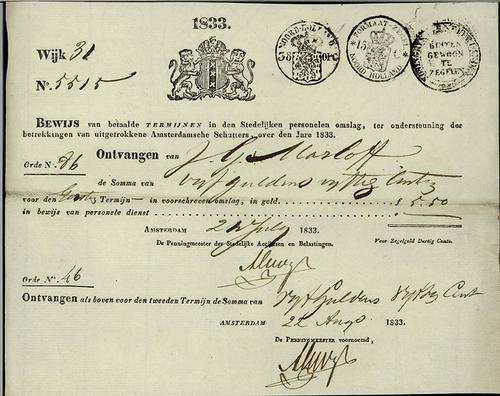 1833.
Wijk 31
No. 5515
NOORD-HOLLAND
38 OPC
FORMAAT-ZEGEL
NOORD HOLLAND
BUITEN
GEWOON
TE
ZEGELEN
BEWIJS van betaalde TERMIJNEN in den Stedelijken personelen omslag, ter ondersteuning der
betrekkingen van uitgetrokkene Amsterdamsche Schutters, over den Jare 1833.
Orde No. 86 Ontvangen van J. G. Marloff
de Somma van vijf guldens vijftig Cents
voor den Eerste Termijn in voorschreven omslag, in geld. $ 5.50
in bewijs van personele dienst
AMSTERDAM July 1833.
De Penningmeester der Stedelijke Accijnsen en Belastingen. Voor Zegelgeld Dertig Cents.
Orde No. 46
Ontvangen als boven voor den tweeden Termijn de Somma van Vijf Guldens Vijftig Cent
AMSTERDAM 22 Aug 1833.
De PENNINGMEESTER voornoemd,